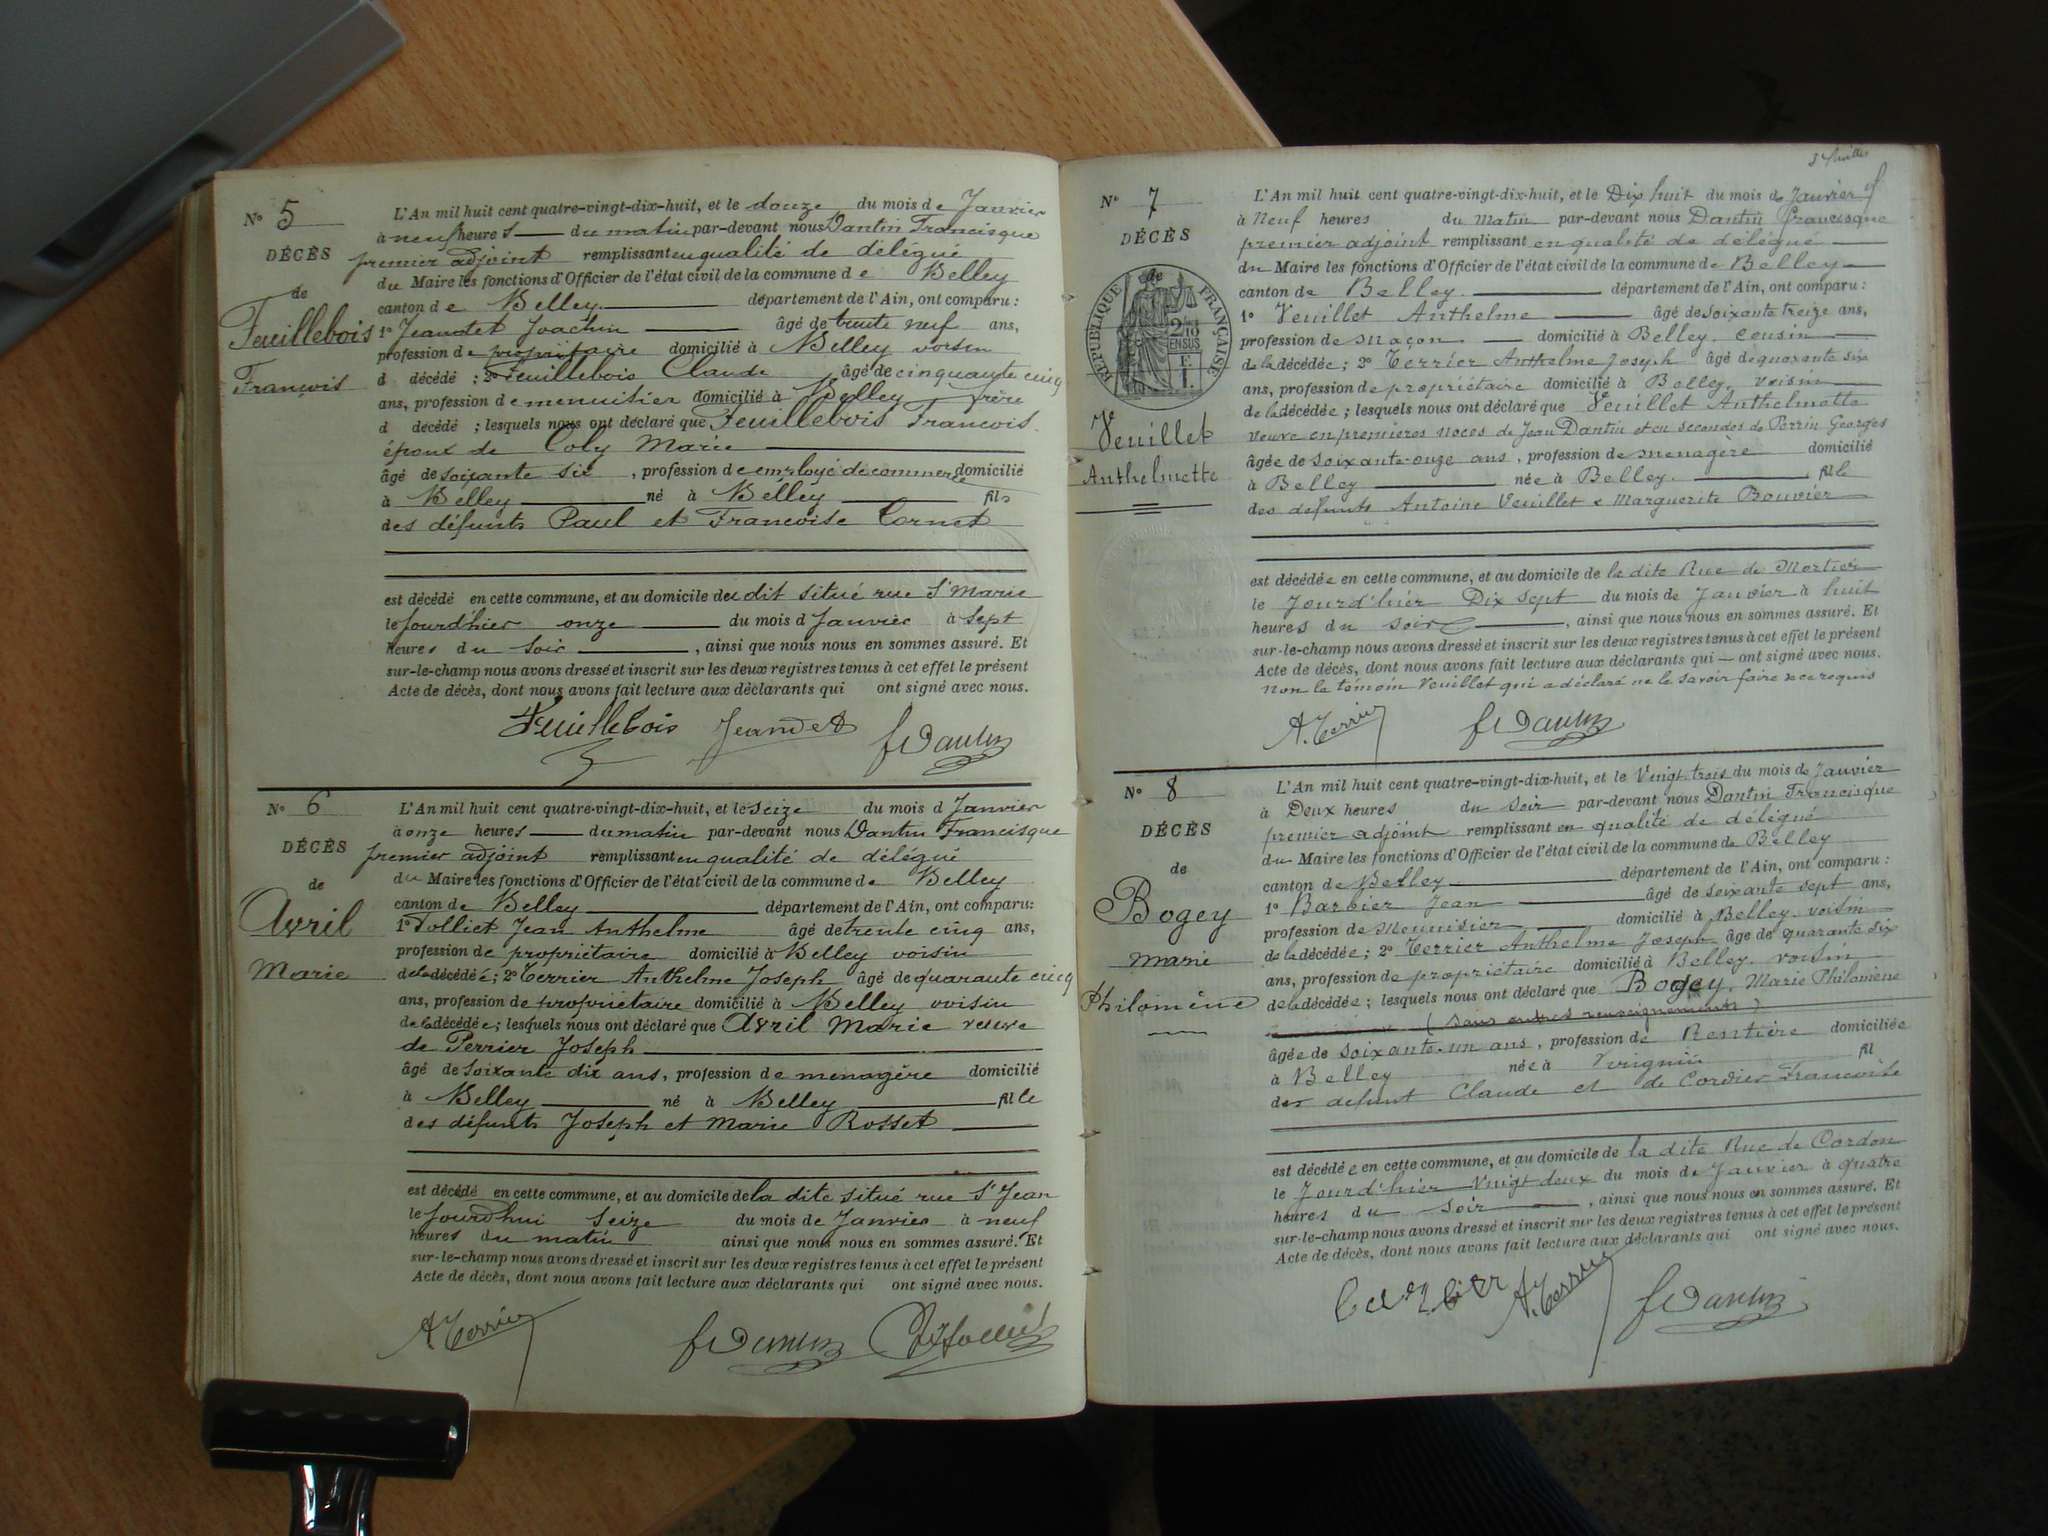 N° 5
DÉCÈS
de
Feuillebois
François
L'An mil huit cent quatre-vingt-dix-huit, et le douze du mois de Janvier
à neuf heures du matin par-devant nous Dantin Francisque
premier adjoint remplissant en qualité de délégué
du Maire les fonctions d'Officier de l'état civil de la commune de Belley
canton de Belley département de l'Ain, ont comparu :
1° Jeandet Joachim âgé de trente neuf ans,
profession de propriétaire domicilié à Belley voisin
d décédé ; 2° Feuillebois Claude âgé de cinquante cinq
ans, profession de menuisier domicilié à Belley frère
d décédé ; lesquels nous ont déclaré que Feuillebois François
époux de Coly Marie
âgé de soixante six , profession de employé de commerce domicilié
à Belley né à Belley fils
des défunts Paul et Francoise Cornet
est décédé en cette commune, et au domicile du dit situé rue St Marie
le jourd'hier onze du mois d Janvier à sept
heures du soir , ainsi que nous nous en sommes assuré. Et
sur-le-champ nous avons dressé et inscrit sur les deux registres tenus à cet effet le présent
Acte de décès, dont nous avons fait lecture aux déclarants qui ont signé avec nous.
Feuillebois Jeandet F Dantin
N° 6
DÉCÈS
de
Avril
Marie
L'An mil huit cent quatre-vingt-dix-huit, et le seize du mois d Janvier
à onze heures du matin par-devant nous Dantin Francisque
premier adjoint remplissant en qualité de délégué
du Maire les fonctions d'Officier de l'état civil de la commune de Belley
canton de Belley département de l'Ain, ont comparu:
1° Tolliet Jean Anthelme âgé de trente cinq ans,
profession de propriétaire domicilié à Belley voisin
de la décédée ; 2° Terrier Anthelme Joseph âgé de quarante cinq
ans, profession de propriétaire domicilié à Belley voisin
de la décédée ; lesquels nous ont déclaré que Avril Marie veuve
de Perrier Joseph
âgé de soixante dix ans, profession de menagère domicilié
à Belley né à Belley fille
des défunts Joseph et Marie Rosset
est décédé en cette commune, et au domicile de la dite situé rue St Jean
le jourd'hui seize du mois de Janvier à neuf
heures du matin ainsi que nous nous en sommes assuré. Et
sur-le-champ nous avons dressé et inscrit sur les deux registres tenus à cet effet le présent
Acte de décès, dont nous avons fait lecture aux déclarants qui ont signé avec nous.
A. Terrier F Dantin
N° 7
DÉCÈS
de
RÉPUBLIQUE FRANÇAISE
Veuillet
Anthelmette
L'An mil huit cent quatre-vingt-dix-huit, et le Dix huit du mois de Janvier
à Neuf heures du matin par-devant nous Dantin Francisque
premier adjoint remplissant en qualité de délégué
du Maire les fonctions d'Officier de l'état civil de la commune de Belley
canton de Belley département de l'Ain, ont comparu :
1° Veuillet Anthelme âgé de soixante treize ans,
profession de maçon domicilié à Belley, cousin
de la décédée ; 2° Terrier Anthelme Joseph âgé de quarante six
ans, profession de propriétaire domicilié à Belley, voisin
de la décédée ; lesquels nous ont déclaré que Veuillet Anthelmette
veuve en premieres noces de Jean Dantin et en secondes de Perrin Georges
âgée de soixante-onze ans , profession de menagère domicilié
à Belley née à Belley fille
des defunts Antoine Veuillet & Marguerite Bouvier
est décédée en cette commune, et au domicile de la dite Rue de Mortier
le Jourd'hier Dix sept du mois de Janvier à huit
heures du soir , ainsi que nous nous en sommes assuré. Et
sur-le-champ nous avons dressé et inscrit sur les deux registres tenus à cet effet le présent
Acte de décès, dont nous avons fait lecture aux déclarants qui — ont signé avec nous.
non le témoin Veuillet qui a déclaré ne le savoir faire de ce requis
A. Terrier F Dantin
N° 8
DÉCÈS
de
Bogey
Marie
Philomène
L'An mil huit cent quatre-vingt-dix-huit, et le Vingt trois du mois de Janvier
à Deux heures du soir par-devant nous Dantin Francisque
premier adjoint remplissant en qualité de délégué
du Maire les fonctions d'Officier de l'état civil de la commune de Belley
canton de Belley département de l'Ain, ont comparu :
1° Barbier Jean âgé de soixante sept ans,
profession de Menuisier domicilié à Belley voisin
de la décédée ; 2° Terrier Anthelme Joseph âgé de quarante six
ans, profession de propriétaire domicilié à Belley, voisin
de la décédée ; lesquels nous ont déclaré que Bogey, Marie Philomène
(sans autres renseignements)
âgée de soixante-un ans , profession de Rentière domiciliée
à Belley née à Virignin fil
des defunt Claude et de Cordier Francoise
est décédée en cette commune, et au domicile de la dite Rue de Cordon
le Jourd'hier Vingt deux du mois de Janvier à quatre
heures du soir , ainsi que nous nous en sommes assuré. Et
sur-le-champ nous avons dressé et inscrit sur les deux registres tenus à cet effet le présent
Acte de décès, dont nous avons fait lecture aux déclarants qui ont signé avec nous.
Barbier A. Terrier F Dantin